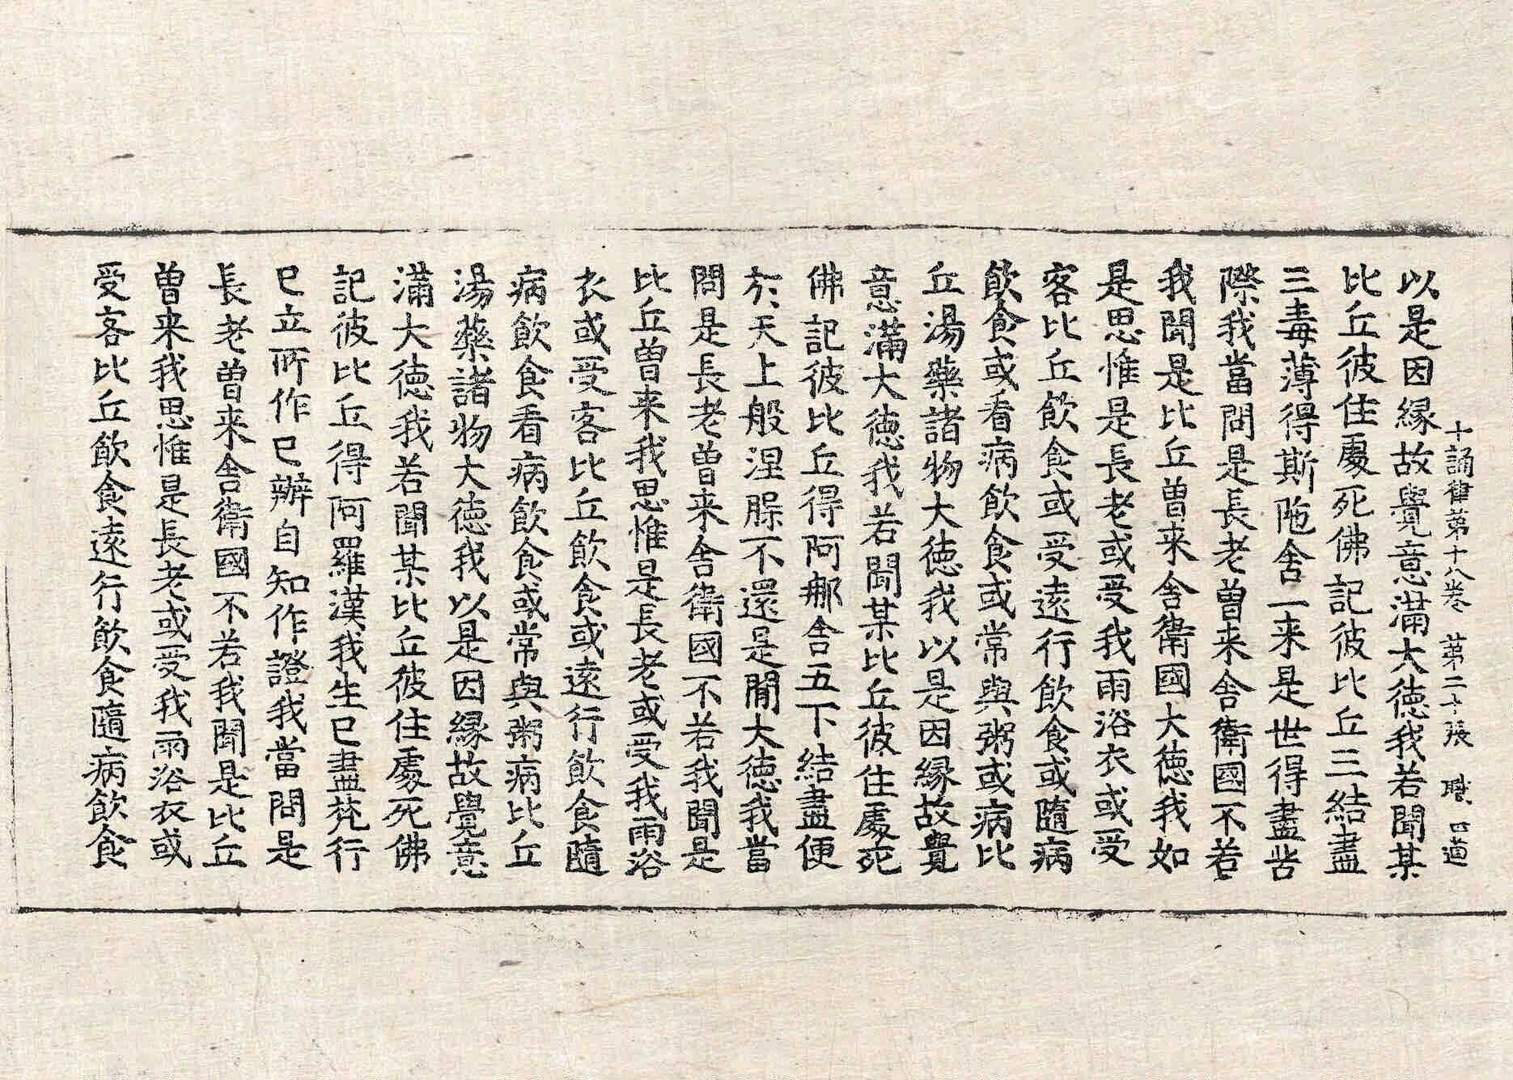 十誦律第十八卷　第二十張　職　四
以是因緣故覺意滿大德我若聞某
比丘彼住處死佛記彼比丘三結盡
三毒薄得斯陁含一来是世得盡苦
際我當問是長老曾来舍衛國不若
我聞是比丘曾来舍衛國大德我如
是思惟是長老或受我雨浴衣或受
客比丘飲食或受遠行飲食或隨病
飲食或看病飲食或常與粥或病比
丘湯藥諸物大德我以是因緣故覺
意滿大德我若聞某比丘彼住處死
佛記彼比丘得阿那含五下結盡便
於天上般涅槃不還是閒大德我當
問是長老曾来舍衛國不若我聞是
比丘曾来我思惟是長老或受我雨浴
衣或受客比丘飲食或遠行飲食隨
病飲食看病飲食或常與粥病比丘
湯藥諸物大德我以是因緣故覺意
滿大德我若聞某比丘彼住處死佛
記彼比丘得阿羅漢我生已盡梵行
已立所作已辦自知作證我當問是
長老曾来舍衛國不若我聞是比丘
曾来我思惟是長老或受我雨浴衣或
受客比丘飲食遠行飲食隨病飲食